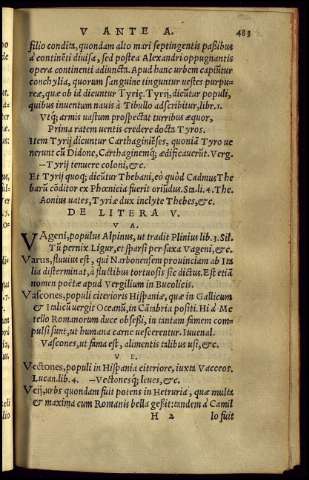 V ANTE A. 483
filio condita, quondam alto mari septingentis passibus
à continēti diuisa, sed postea Alexandri oppugnantis
opera continenti adiuncta. Apud hanc urbem capiūtur
conchylia, quorum sanguine tinguntur uestes purpu-
reæ, quæ ob id dicuntur Tyrię. Tyrij, dicūtur populi,
quibus inuentum nauis à Tibullo adscribitur, lib. 1.
Vtq́; armis uastum prospectat turribus æquor,
Prima ratem uentis credere docta Tyros.
Item Tyrij dicuntur Carthaginiēses, quoniā Tyro ue
nerunt cū Didone, Carthaginemq́; ædificauerūt. Verg.
–Tyrij tenuere coloni, &c.
Et Tyrij quoq́; dicūtur Thebani, eò quòd Cadmus The
barū cōditor ex Phœnicia fuerit oriūdus. Sta. li. 4. The.
Aonius uates, Tyriæ dux inclyte Thebes, &c.
DE LITERA V.
V A.
VAgeni, populus Alpinus, ut tradit Plinius lib. 3. Sil.
Tū pernix Ligur, et sparsi per saxa Vageni, &c.
Varus, fluuius est, qui Narbonensem prouinciam ab Ita
lia disterminat, à fluctibus tortuosis sic dictus. Est etiā
nomen poëtæ apud Vergilium in Bucolicis.
Vascones, populi citerioris Hispaniæ, quæ in Gallicum
& Italicū uergit Oceanū, in Cābria positi. Hi à Me
tello Romanorum duce obsessi, in tantam famem com
pulsi sunt, ut humana carne uescerentur. Iuuenal.
Vascones, ut fama est, alimentis talibus usi, &c.
V E.
Vectones, populi in Hispania citeriore, iuxta Vacceos.
Lucan. lib. 4. –Vectonesq́; leues, &c.
Veij, urbs quondam fuit potens in Hetruria, quæ multa
& maxima cum Romanis bella gessit: tandem à Camil
H 2 lo fuit